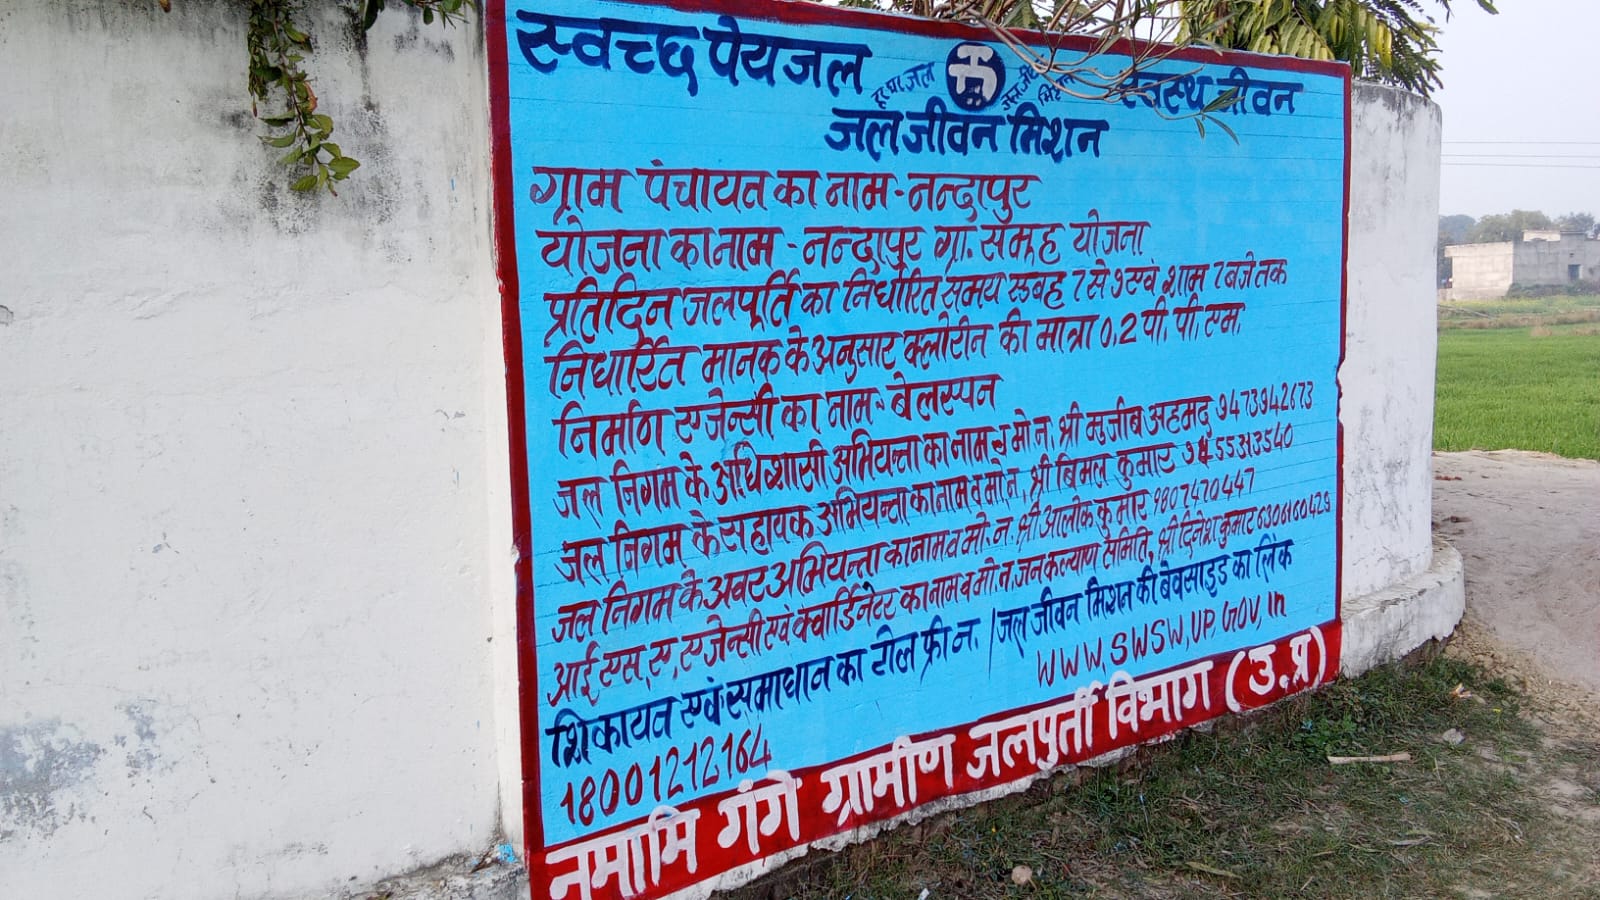 स्वच्छ पेयजल हर घर जल जल जीवन मिशन स्वस्थ जीवन
जल जीवन मिशन
ग्राम पंचायत का नाम - नन्दापुर
योजना का नाम - नन्दापुर ग्रा. समूह योजना
प्रतिदिन जलपूर्ति का निर्धारित समय सुबह 7 से 9 एवं शाम 7 बजे तक
निर्धारित मानक के अनुसार क्लोरीन की मात्रा 0.2 पी. पी. एम.
निर्माण एजेन्सी का नाम - बेलस्पन
जल निगम के अधिशासी अभियन्ता का नाम व मो. न. श्री मुजीब अहमद 9473942673
जल निगम के सहायक अभियन्ता का नाम व मो. न. श्री बिमल कुमार
जल निगम के अवर अभियन्ता का नाम व मो. न. श्री आलोक कुमार 9807470447
आई एस. ए. एजेन्सी एवं क्वार्डिनेटर का नाम व मो. न. जनकल्याण समिति, श्री दिनेश कुमार 6306160429
शिकायत एवं समाधान का टोल फ्री न. / जल जीवन मिशन की बेवसाइड का लिंक
18001212164 WWW.SWSW,UP,GOV,in
नमामि गंगे ग्रामीण जलपुर्ती विभाग (उ.प्र)